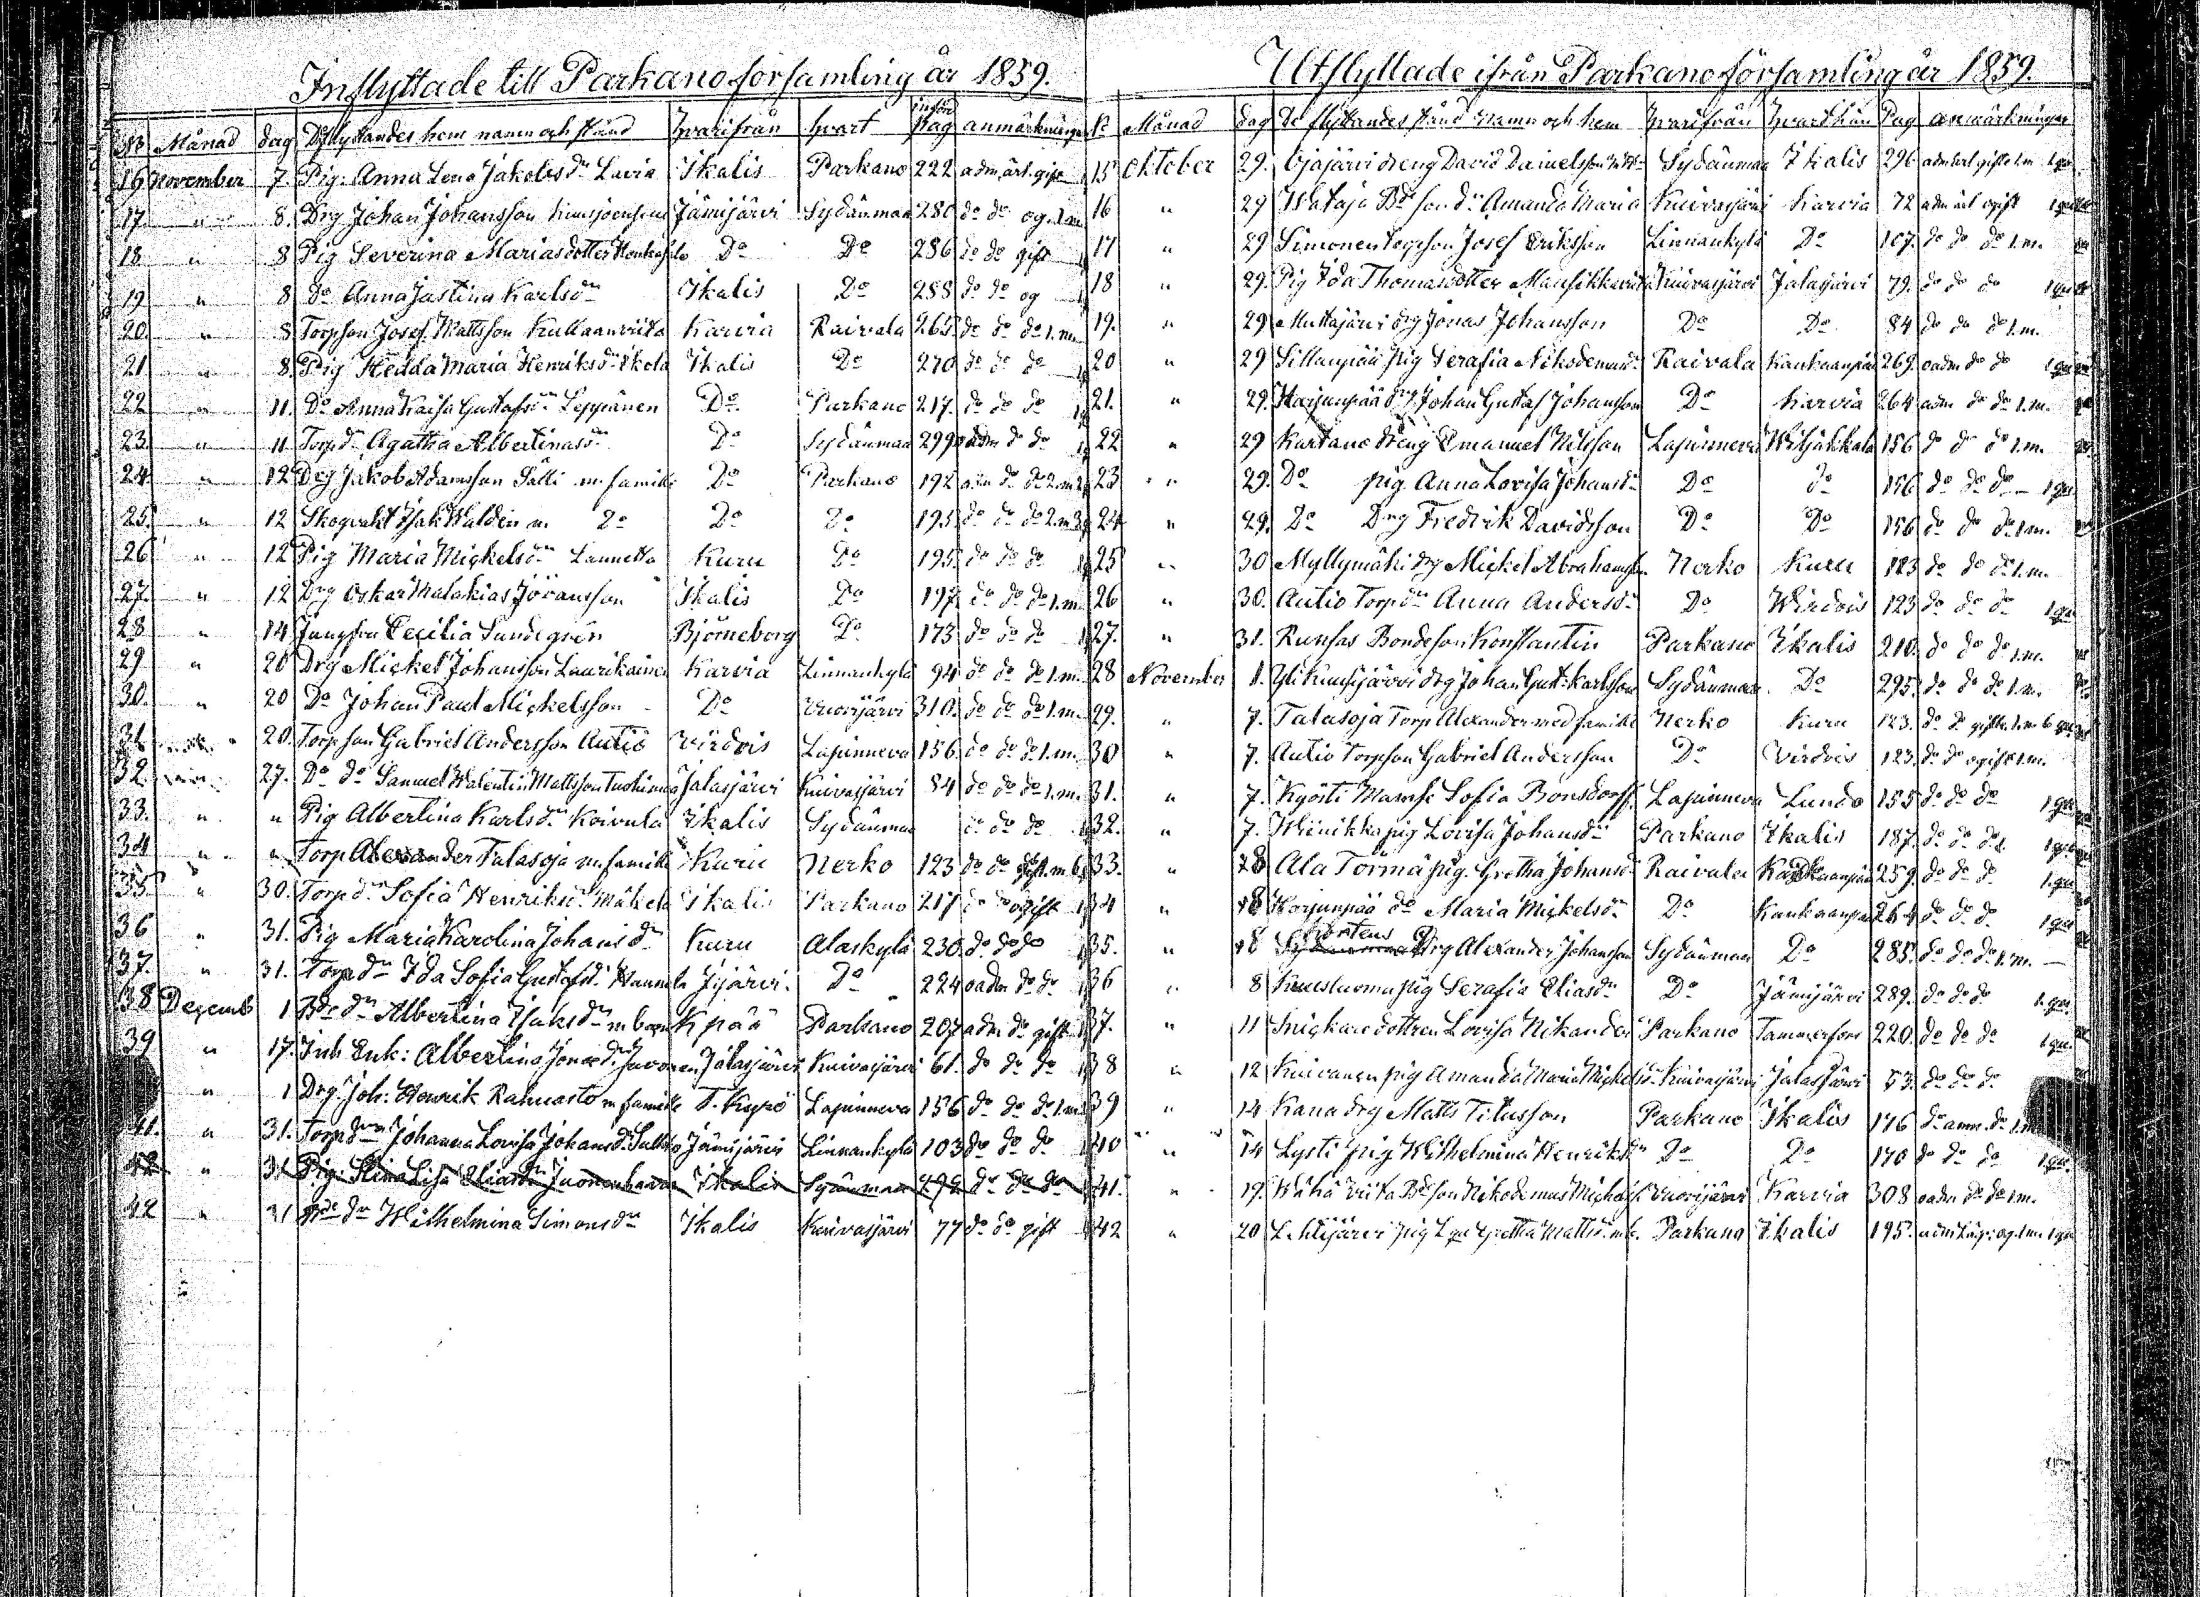 Inflyttade till Parkano församling år 1859.
No Månad dag De flyttandes hem namn och stånd hvarifrån hvart införd pag anmärkningar
16 November 7. Pig. Anna Lena Jakobsdr Lavia Ikalis Parkano 222 adm. ärl. gift
17. " 8. Drg Johan Johansson Jämijärvi Sydänmaa 280 do do og. 1 m
18 " 8 Pig Severina Mariasdotter Do Do 286 do do gift
19 " 8 Do Anna Justina Karlsdr Ikalis Do 288 do do og
20. " 8 Torpson Josef Mattsson Kullaanviita Karvia Raivala 265 do do do 1. m.
21 " 8. Pig Hedda Maria Henriksdr Ikola Ikalis Do 270 do do do
22 " 11. Do Anna Kaisa Gustafsdr Leppänen Do Parkano 217. do do do
23 " 11 Torpdr Agatha Albertinasdr Do Sydänmaa 299 oadm do do
24. " 12 Drg Jakob Adamsson Sälli m. familie Do Parkano 192 adm do do 2. m
25. " 12 Skogvakt Isak Waldén m. Do Do Do 195. do do do 2. m 3
26 " 12 Pig Maria Mickelsdr Lannetta Kuru Do 195. do do do
27. " 12 Drg Oskar Malakias Jöransson Ikalis Do 197. do do do 1. m.
28 " 14 Jungfru Cecilia Sundegrén Björneborg Do 173 do do do
29 " 20 Drg Mickel Johansson Laurikainen Karvia Linnankylä 94 do do do 1. m.
30. " 20 Do Johan Paul Mickelsson Do Vuorijärvi 310. do do do 1. m.
31 " 20. Torpson Gabriel Andersson Autio Virdois Lapinneva 156. do do do 1. m.
32 27. Do do Samuel Walentin Mattsson Jalasjärvi Kuivasjärvi 84 do do do 1. m.
33. " " Pig Albertina Karlsdr Koivula Ikalis Sydänmaa do do do
34 " " Torp Alexander Talasoja m. familie Kuru Nerko 123 do do gift 1. m 6
35 " 30. Torpdr Sofia Henriksdr Mäkelä Ikalis Parkano 217 do do ogift
36 " 31. Pig Maria Karolina Johansdr Kuru Alaskylä 230. do do do
37. " 31. Torpdr Ida Sofia Gustafsdr Hannula Do 224 oadm do do
38 Decemb 1 Bdedr Albertina Isaksdr m barn K pää Parkano 207 adm do gift
39 " 17. Inh Enk: Albertina Jonaedr Javonen Jalasjärvi Kuivasjärvi 61. do do do
" 1 Drg. Joh: Henrik Rahnasto m familie T. Kyrö Lapinneva 156 do do do 1. m.
41. " 31. Torpdr Johanna Lovisa Johansdr Jämijärvi Linnankylä 103 do do do
42 " 31 Pig. Stina Lisa Eliasdr Ikalis Sydänmaa do do do
42 " 31 Bdedr Wilhelmina Simonsdr Ikalis Kuivasjärvi 77 do do gift
Utflyttade ifrån Parkano församling år 1859.
No Månad dag De flyttandes stånd namn och hem hvarifrån hvarthän Pag anmärkningar
15 Oktober 29. Ojajärvi dreng David Danielsson Sydänmaa Ikalis 296
16 " 29 Wataja Bdesondr Amanda Maria Kuivasjärvi Karvia 72 adm ärl ogift
17 " 29 Simonen torpson Josef Eriksson Linnankylä Do 107. do do do 1. m.
18 " 29. Pig Ida Thomasdotter Mansikkaviita Kuivasjärvi Jalasjärvi 79. do do do
19. " 29 Mustajärvi drg Jonas Johansson Do Do 84 do do do 1. m.
20 " 29 Sillanpää pig Serafia Nikodemusdr Raivala Kankaanpää 269. oadm do do
21. " 29. Harjunpää drg Johan Gustaf Johansson Do Karvia 264 adm do do 1. m.
22 " 29 Kartano dreng Emanuel Nilsson Lapinneva Wiljakkala 156 do do do 1. m.
23 " 29. Do pig. Anna Lovisa Johansdr Do do 156 do do do
24 " 29. Do Drg Fredrik Davidsson Do Do 156 do do do 1 m.
25 " 30 Myllymäki drg Mickel Abrahamsson Nerko Kuru 123 do do do 1. m.
26 " 30. Autio Torpdr Anna Andersdr Do Wirdois 123 do do do
27. " 31. Runsas Bondeson Konstantin Parkano Ikalis 210. do do do 1. m.
28 November 1. Yli Kuusijärvi drg Johan Gust: Karlsson Sydänmaa Do 295. do do do 1. m.
29. " 7. Talasoja Torp Alexander med familie Nerko Kuru 123. do do gifta 1. m 6
30 " 7. Autio Torpson Gabriel Andersson Do Virdois 123. do do ogift 1. m.
31. " 7. Kyösti Mamsell Sofia Bonsdorff Lapinneva Lundo 155 do do do
32. " 7. Wiinikka pig Lovisa Johansdr Parkano Ikalis 187. do do do
33. " 28 Ala Törmä pig. Gretha Johansdr Raivala Kankaanpää 259. do do do
34 " 8 Harjunpää do Maria Mickelsdr Do Kankaanpää 264 do do do
35. " 8 Drg Alexander Johansson Sydänmaa Do 285. do do do 1. m.
36 " 8 Kuusluoma pig Serafia Eliasdr Do Jämijärvi 289. do do do
37. " 11 Snickaredottren Lovisa Nikander Parkano Tammerfors 220. do do do 1 qn.
38 " 12 Kuivanen pig Amanda Maria Mickelsdr Kuivasjärvi Jalasjärvi 53. do do do
39 " 14 Kana drg Matts Titusson Parkano Ikalis 176 do anm. do 1. m
40 " 14 Lysti pig Wilhelmina Henriksdr Do Do 170 do do do
41. " 19. Wähä Viita Bdeson Nikodemus Michelss. Vuorijärvi Karvia 308 oadm do do 1 m.
42 " 20 Lehtijärvi pig Gretha Mattsdr m b. Parkano Ikalis 195.